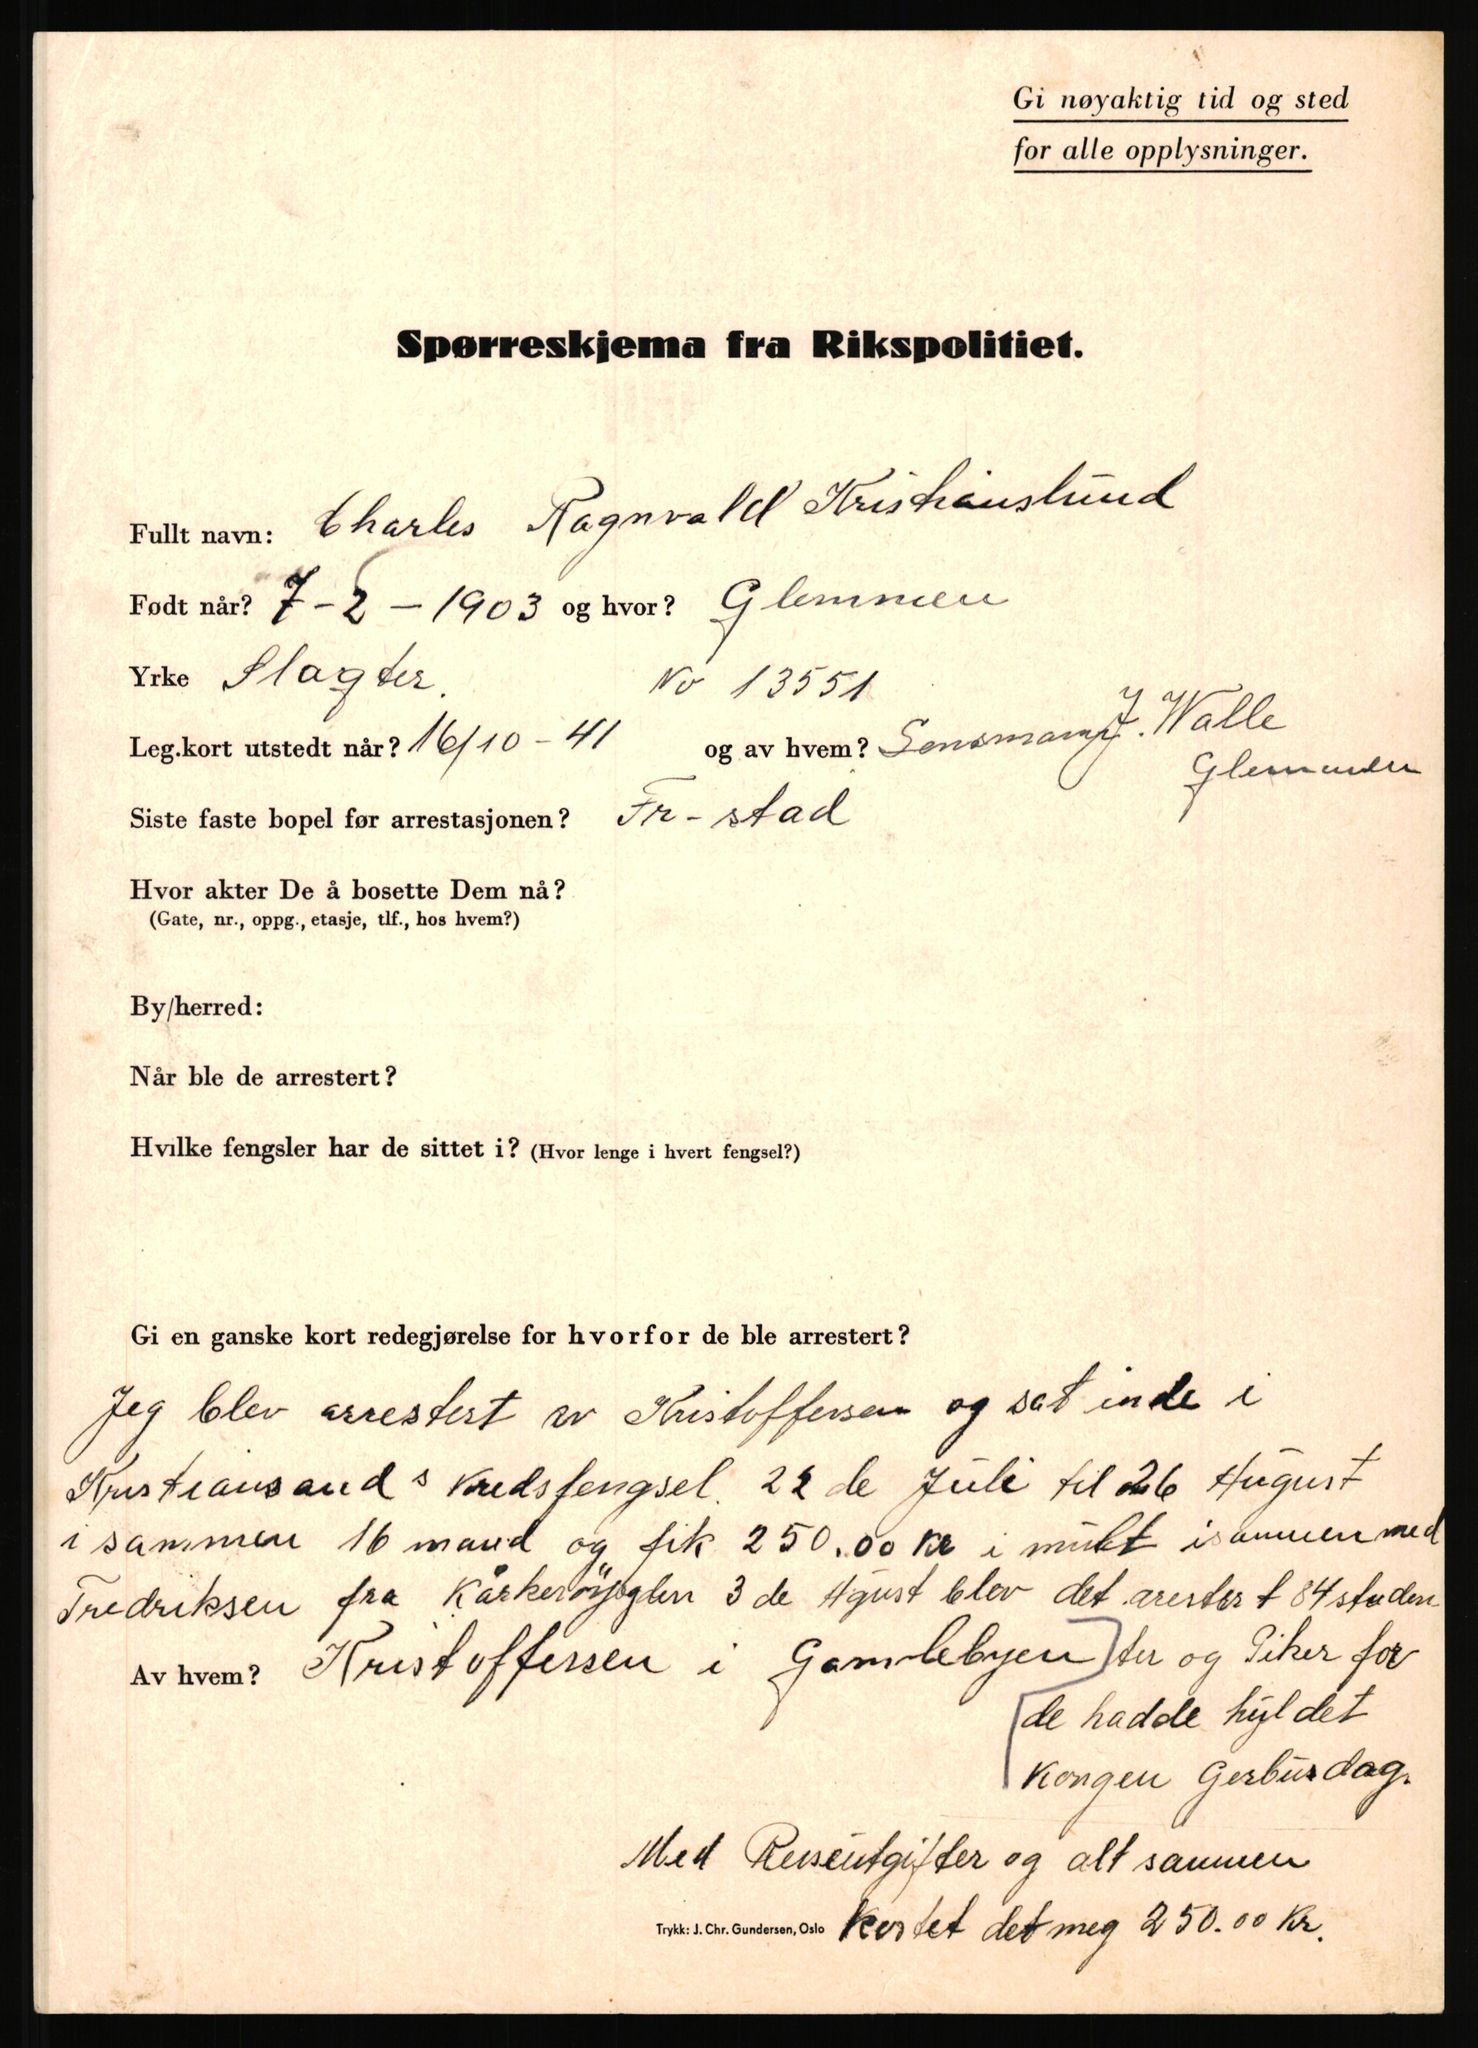 Gi nøyaktig tid og sted
for alle opplysninger.
Spørreskjema fra Rikspolitiet.
Fullt navn: Charles Ragnvald Kristianslund
Født når? 7-2-1903 og hvor? Glemmen
Yrke Slagter. No 13551
Leg.kort utstedt når? 16/10-41 og av hvem? Lensmann J. Walle
Glemmen
Siste faste bopel før arrestasjonen? Fr-stad
Hvor akter De å bosette Dem nå?
(Gate, nr., oppg., etasje, tlf., hos hvem?)
By/herred:
Når ble de arrestert?
Hvilke fengsler har de sittet i? (Hvor lenge i hvert fengsel?)
Gi en ganske kort redegjørelse for hvorfor de ble arrestert?
Jeg blev arrestert av Kristoffersen og sat inde i
Kristiansands Kredsfengsel. 22 de Juli til 26 August
i sammen 16 mand og fik 250.00 Kr i mult isammen med
Fredriksen fra 3 de Agust blev det arestert 84 studen
Av hvem? Kristoffersen i Gamlebyen ter og Piker for
de hadde hyldet
Kongen Gerbursdag.
Med Reiseutgifter og alt sammen
Trykk: J. Chr. Gundersen, Oslo Kostet det meg 250.00 Kr.